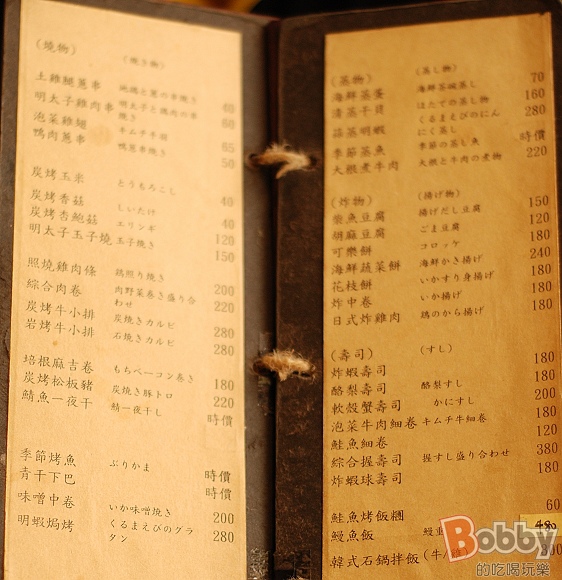 (燒物) (燒き物)
土雞腿蔥串 地鶏と葱の串焼き 40
明太子雞肉串 明太子と鶏肉の串焼き 60
泡菜雞翅 キムチ手羽 65
鴨肉蔥串 鴨葱串焼き 50
炭烤玉米 とうもろこし
炭烤香菇 しいたけ 40
炭烤杏鮑菇 エリンギ 40
明太子玉子燒 玉子焼き 120
150
照燒雞肉條 鶏照り焼き
綜合肉卷 肉野菜巻き盛り合わせ 200
炭烤牛小排 炭焼きカルビ 220
岩烤牛小排 石焼きカルビ 280
280
培根麻吉卷 もちベーコン巻き
炭烤松板豬 炭焼き豚トロ 180
鯖魚一夜干 鯖一夜干し 220
時價
季節烤魚
青干下巴 ぶりかま 時價
時價
味噌中卷 いか味噌焼き 200
明蝦焗烤 くるまえびのグラタン 280
(蒸物) (蒸し物)
海鮮蒸蛋 海鮮茶碗蒸し 70
清蒸干貝 ほたての蒸し物 160
蒜蒸明蝦 くるまえびのにんにく蒸し 280
季節蒸魚 季節の蒸し魚 時價
大根煮牛肉 大根と牛肉の煮物 220
(炸物) (揚げ物)
柴魚豆腐 揚げだし豆腐 150
胡麻豆腐 ごま豆腐 120
可樂餅 コロッケ 180
海鮮蔬菜餅 海鮮かき揚げ 240
花枝餅 いかすり身揚げ 180
炸中卷 いか揚げ 180
日式炸雞肉 鶏のから揚げ 180
(壽司) (すし)
炸蝦壽司 180
酪梨壽司 酪梨すし 180
軟殼蟹壽司 かにすし 200
泡菜牛肉細卷 キムチ牛細巻 180
鮭魚細卷 120
綜合握壽司 握すし盛り合わせ 380
炸蝦球壽司 180
鮭魚烤飯糰 60
鰻魚飯 鰻重 480
韓式石鍋拌飯(牛/雞)
Bobby
的吃喝玩樂